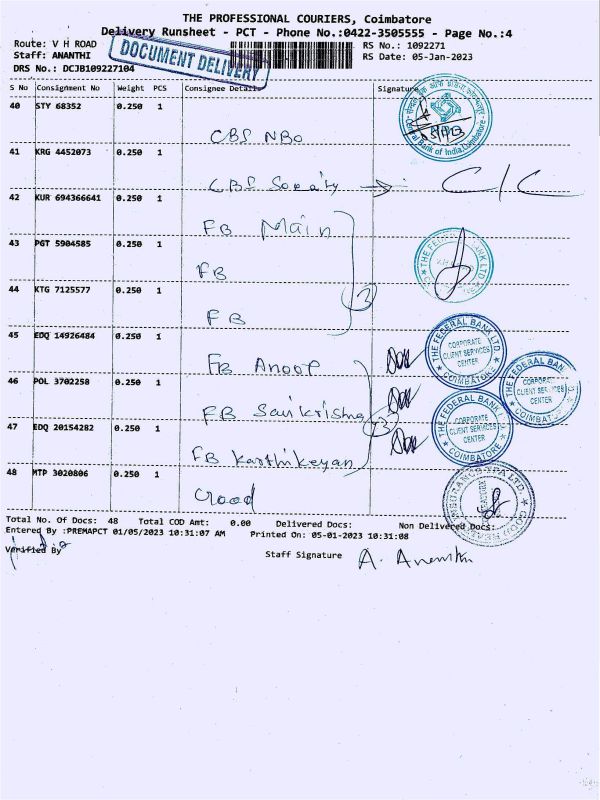 THE PROFESSIONAL COURIERS, Coimbatore
Delivery Runsheet - PCT - Phone No.:0422-3505555 - Page No.:4
Route: V H ROAD
RS No.: 1092271
Staff: ANANTHI
RS Date: 05-Jan-2023
DRS No.: DCJB109227104
DOCUMENT DELIVERY
S No Consignment No Weight PCS Consignee Details Signature
40 STY 68352 0.250 1
CBS NBO
41 KRG 4452073 0.250 1
CBS Society → C/C
42 KUR 694366641 0.250 1
FB Main
43 PGT 5904585 0.250 1
FB
44 KTG 7125577 0.250 1
FB
3
45 EDQ 14926484 0.250 1
FB Anoop
46 POL 3702258 0.250 1
FB Saikrishna
3
47 EDQ 20154282 0.250 1
FB Karthikeyan
48 MTP 3020806 0.250 1
Bank of India, Coimbatore
THE FEDERAL BANK LTD
THE FEDERAL BANK LTD.
CORPORATE
CLIENT SERVICES
CENTER
COIMBATORE
THE FEDERAL BANK
CLIENT SERVICES
CENTER
COIMBATORE
THE FEDERAL BANK LTD.
CORPORATE
CLIENT SERVICES
CENTER
COIMBATORE
Total No. Of Docs: 48 Total COD Amt: 0.00 Delivered Docs: Non Delivered Docs:
Entered By :PREMAPCT 01/05/2023 10:31:07 AM Printed On: 05-01-2023 10:31:08
Verified By
Staff Signature